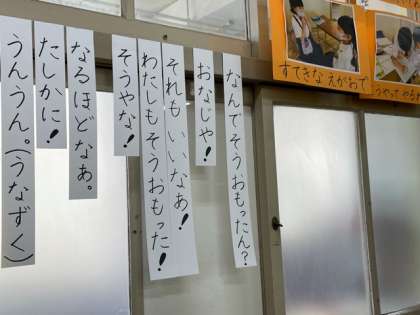 なんでそうおもったん?
おなじや!
それも いいなぁ!
わたしもそうおもった!
そうやな!
なるほどなぁ。
たしかに!
うんうん。(うなずく)
すてきなえがおで